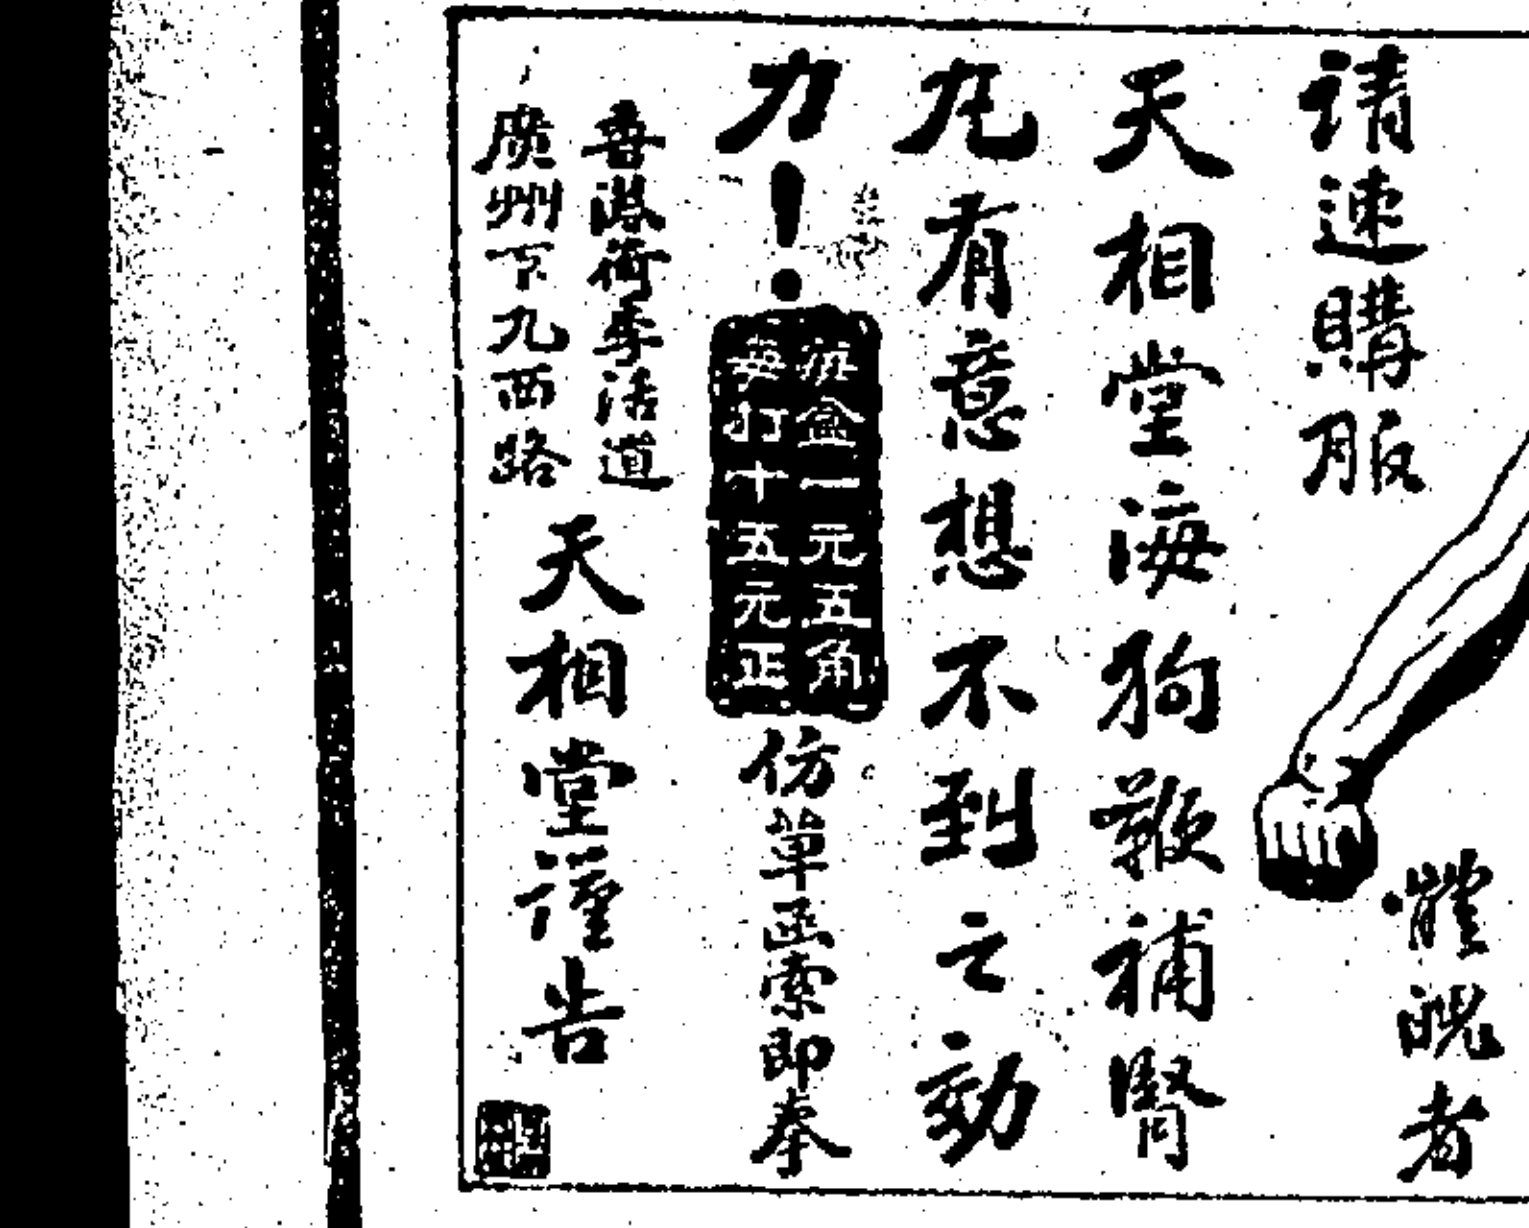 體魄者
請速購服
天相堂海狗鞭補腎
丸有意想不到之効
力！
每盒一元五角
每打十五元正
仿單函索即奉
香港荷李活道
廣州下九西路
天相堂謹告